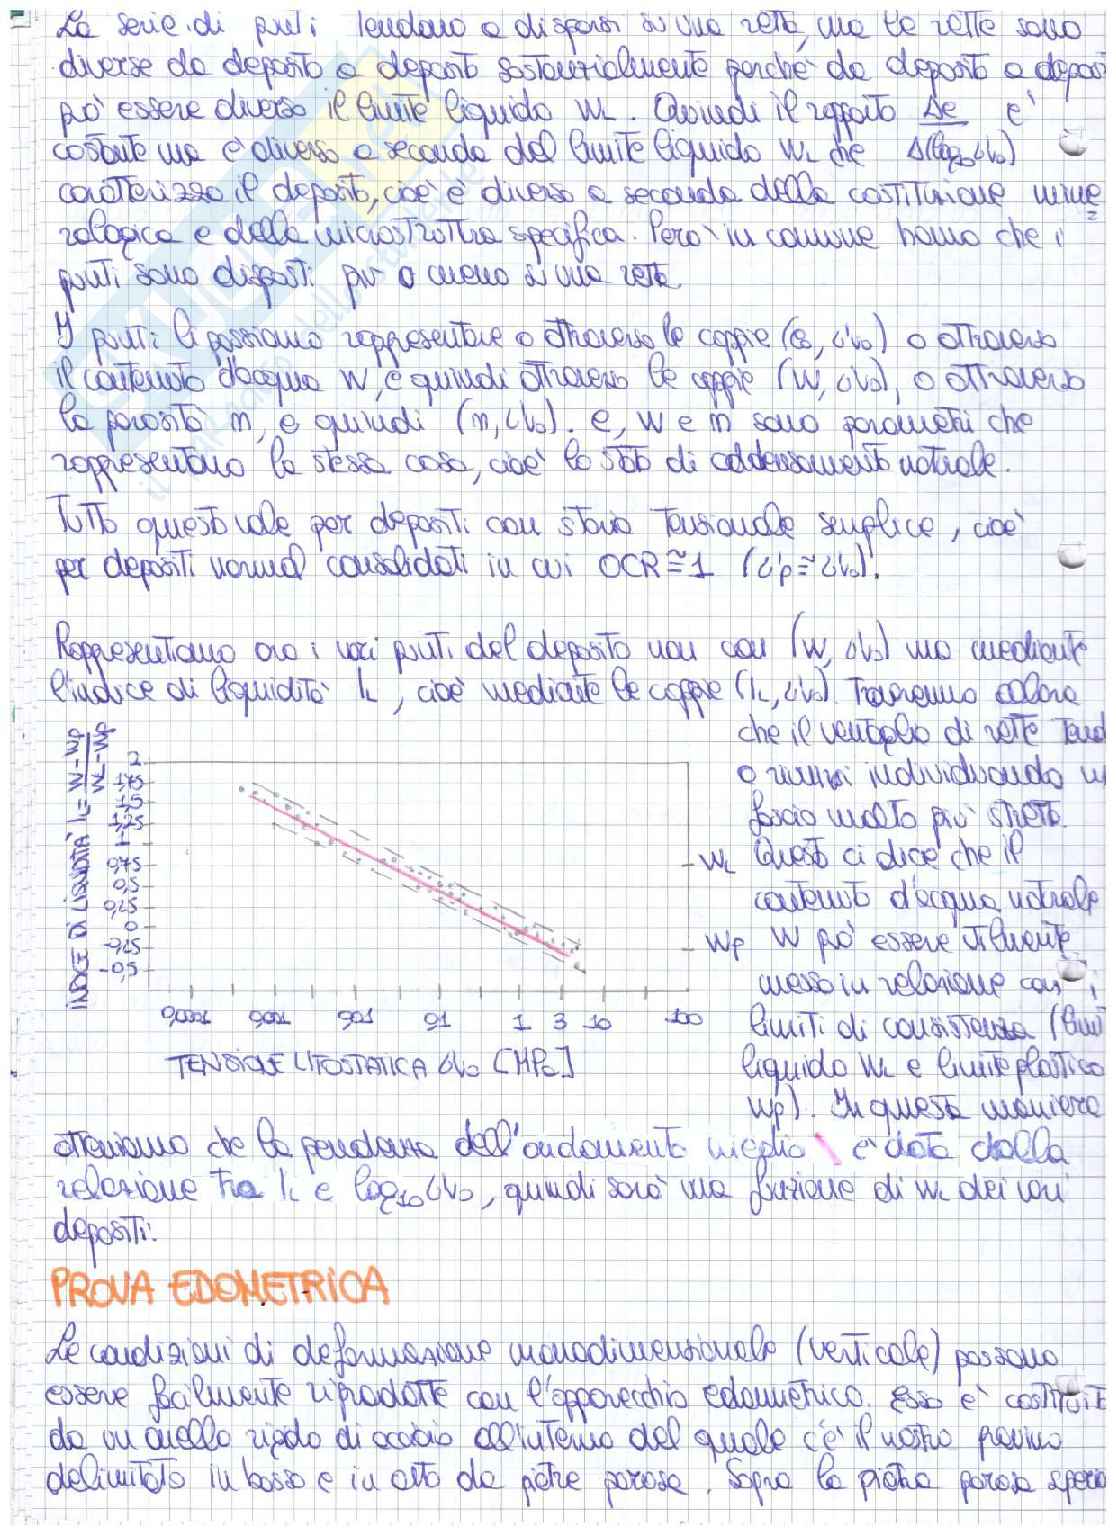 La serie di punti tendono a disporsi su una retta, ma le rette sono
diverse da deposito a deposito sostanzialmente perché da deposito a deposi
può essere diverso il limite liquido WL. Quindi il rapporto Δe è
costante ma è diverso a seconda del limite liquido WL che Δ(log10 σ'v0)
caratterizza il deposito, cioè è diverso a seconda della costituzione mine
ralogica e della microstruttura specifica. Però in comune hanno che i
punti sono disposti più o meno su una retta.
I punti li possiamo rappresentare o attraverso le coppie (e, σ'v0) o attraverso
il contenuto d'acqua W, e quindi attraverso le coppie (W, σ'v0), o attraverso
la porosità n, e quindi (n, σ'v0). e, W e n sono parametri che
rappresentano la stessa cosa, cioè lo stato di addensamento naturale.
Tutto questo vale per depositi con storia tensionale semplice, cioè
per depositi normal consolidati in cui OCR≅1 (σ'p≅σ'v0).
Rappresentiamo ora i vari punti del deposito non con (W, σ'v0) ma mediante
l'indice di liquidità IL, cioè mediante le coppie (IL, σ'v0). Troveremo allora
che il ventaglio di rette tend
a riunirsi individuando un
fascio molto più stretto.
Questo ci dice che il
contenuto d'acqua naturale
W può essere utilmente
messo in relazione con i
limiti di consistenza (limit
liquido WL e limite plastico
Wp). In questa maniera
INDICE DI LIQUIDITÀ IL = W-Wp
WL-Wp
2
1,75
1,5
1,25
1
0,75
0,5
0,25
0
-0,25
-0,5
WL
Wp
0,0001 0,001 0,01 0,1 1 3 10 100
TENSIONE LITOSTATICA σ'v0 [MPa]
otteniamo che la pendenza dell'andamento medio \ è data dalla
relazione tra IL e log10 σ'v0, quindi sarà una funzione di WL dei vari
depositi.
PROVA EDOMETRICA
Le condizioni di deformazione monodimensionale (verticale) possono
essere facilmente riprodotte con l'apparecchio edometrico. Esso è costituit
da un anello rigido di acciaio all'interno del quale c'è il nostro provino
delimitato in basso e in alto da pietre porose. Sopra la pietra porosa